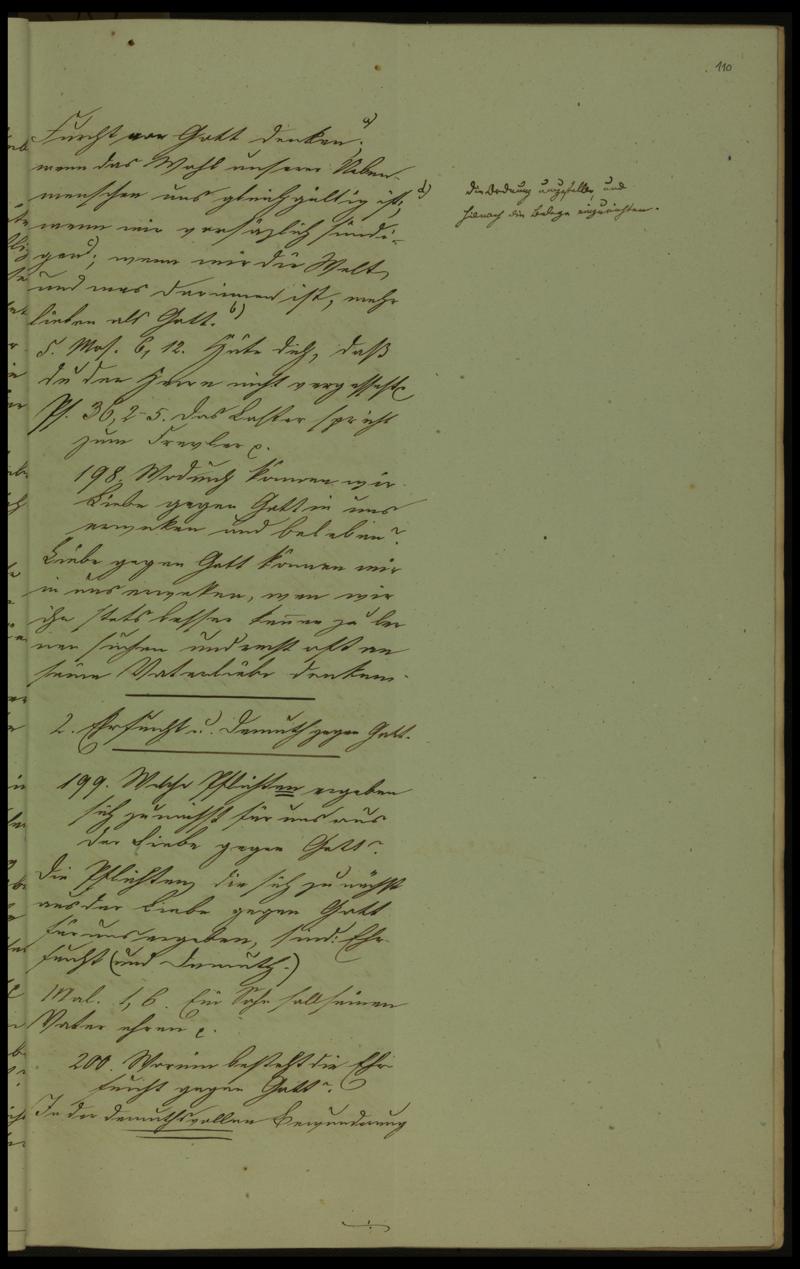 110
Furcht vor Gott denken; a)
wenn das Wohl unserer Neben-
menschen uns gleichgültig ist; d)
wenn wir vorsäzlich sündi-
gen c); wenn wir die Welt,
und was darinnen ist, mehr
lieben als Gott. b)
5. Mos. 6, 12. Hüte dich, daß
du des Herrn nicht vergessest
Ps. 36, 2-5. Das Laster spricht
zum Frevler
198. Wodurch können wir
Liebe gegen Gott in uns
erweken und beleben?
Liebe gegen Gott können wir
in uns erweken, wen wir
ihn stets besser kennen zu ler
nen suchen und recht oft an
seine Vaterliebe denken.
2. Ehrfurcht u. Demuth gegen Gott.
199. Welche Pflichten ergeben
sich zunächst für uns aus
der Liebe gegen Gott?
Die Pflichten, die sich zunächst
aus der Liebe gegen Gott
für uns ergeben, sind: Ehr
furcht (und Demuth.)
Mal. 1, 6. Ein Sohn soll seinen
Vater ehren
200. Worinn besteht die Ehr
furcht gegen Gott?
In der demuthsvollen Bewunderung
d) die Ordnung und
hienach die Belege einzurichten.